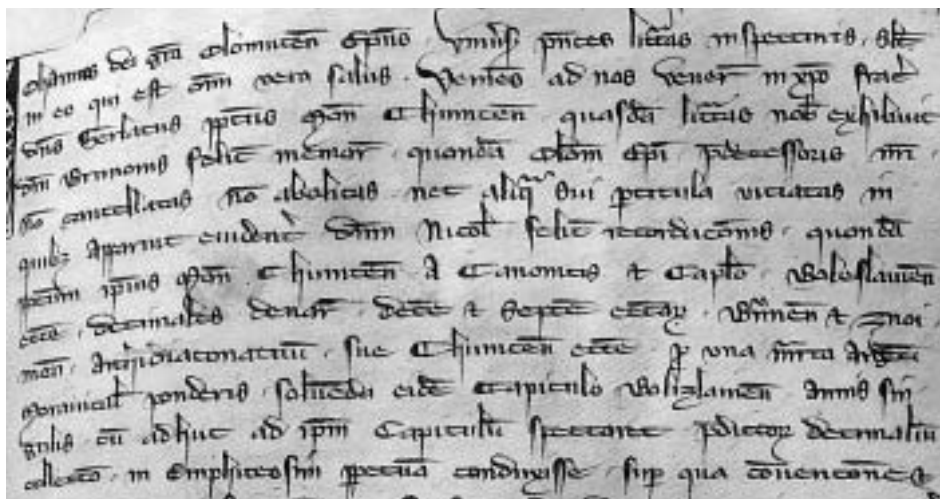 ohannes dei gr̄a Olomucen̄ Ep̄us . Vniu̾s pn̄tes litt̾as inspecturis . sal̄t
in eo qui est om̄ vera salus . Veniēs ad nos vener̄ in xp̄o frat̾
dn̄s Gerlacus pp̄tus Mon̄ Chunicen̄ . quasdā litt̾as nob̾ exhibuit
dn̄i Brunonis felic̾ memor̄ . quondā Olom̄ Ep̄i . p̄decessoris nr̄i .
nō cancellatas nō abolitas . nec aliqͣ sui p̄ticula viciatas in
quibꝫ apparuit euident̾ dn̄m Nicol̾ felic̾ recordac̄onis . quondā
ipīus Mon̄ Chunicen̄ a Canonicis ⁊ Cap̄lo . Boleslauien̄
ecc̄e . decimales denar̄ . decē ⁊ septē ecc̄aꝝ . Brn̄nen̄ ⁊ znoi
men̄ . Archidiaconatuū . sue Chunicen̄ ecc̄e . ꝑ vna mr̄ca
Morauical̾ ponderis . soluēda eidē Capitulo Bolizlauien̄ Annis sin
gulis . cū adhuc ad ip̄m Capitulū spectaret p̄dictoꝝ decimaliū
collecc̄o . in Emphiteosim ꝑpetuā conduxisse . suꝑ qua cōuenc̄one ⁊